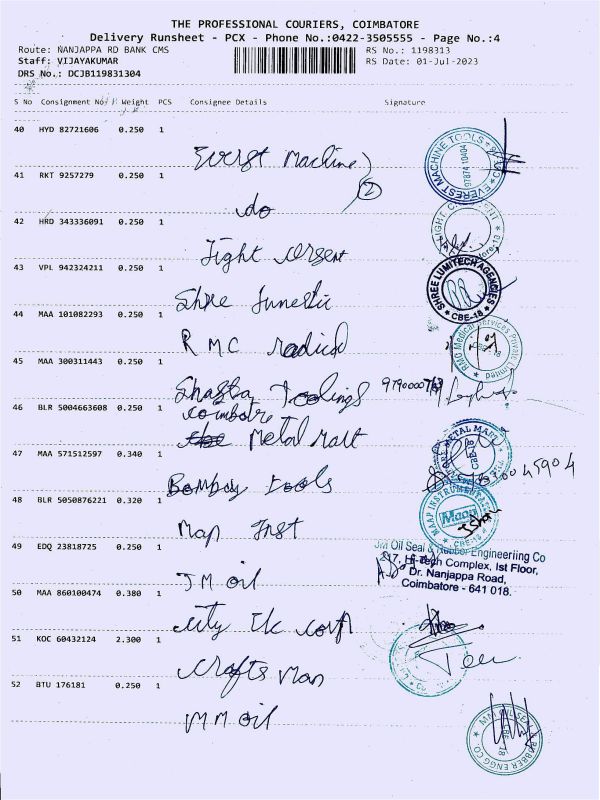 THE PROFESSIONAL COURIERS, COIMBATORE
Delivery Runsheet - PCX - Phone No.:0422-3505555 - Page No.:4
Route: NANJAPPA RD BANK CMS
RS No.: 1198313
Staff: VIJAYAKUMAR
RS Date: 01-Jul-2023
DRS No.: DCJB119831304
S No Consignment No Weight PCS Consignee Details Signature
40 HYD 82721606 0.250 1
Everst Machine
EVEREST MACHINE TOOLS
9787410404
41 RKT 9257279 0.250 1
2
do
42 HRD 343336091 0.250 1
43 VPL 942324211 0.250 1
Shree
SHREE LUMITECH AGENCIES
CBE-18
44 MAA 101082293 0.250 1
RMC
RMC Medical Services Private Limited
45 MAA 300311443 0.250 1
Toolings
46 BLR 5004663608 0.250 1
Metal Mart
METAL MART
47 MAA 571512597 0.340 1
Bombay tools
48 BLR 5050876221 0.320 1
MAAP INSTRUMENTATION
Maap
CBE-18
Map Inst
49 EDQ 23818725 0.250 1
JM Oil Seal & Rubber Engineeriing Co
Hi-Tech Complex, Ist Floor,
Dr. Nanjappa Road,
Coimbatore - 641 018.
JM oil
50 MAA 860100474 0.380 1
city
51 KOC 60432124 2.300 1
Crafts man
52 BTU 176181 0.250 1
MM oil
RUBBER ENGG CO